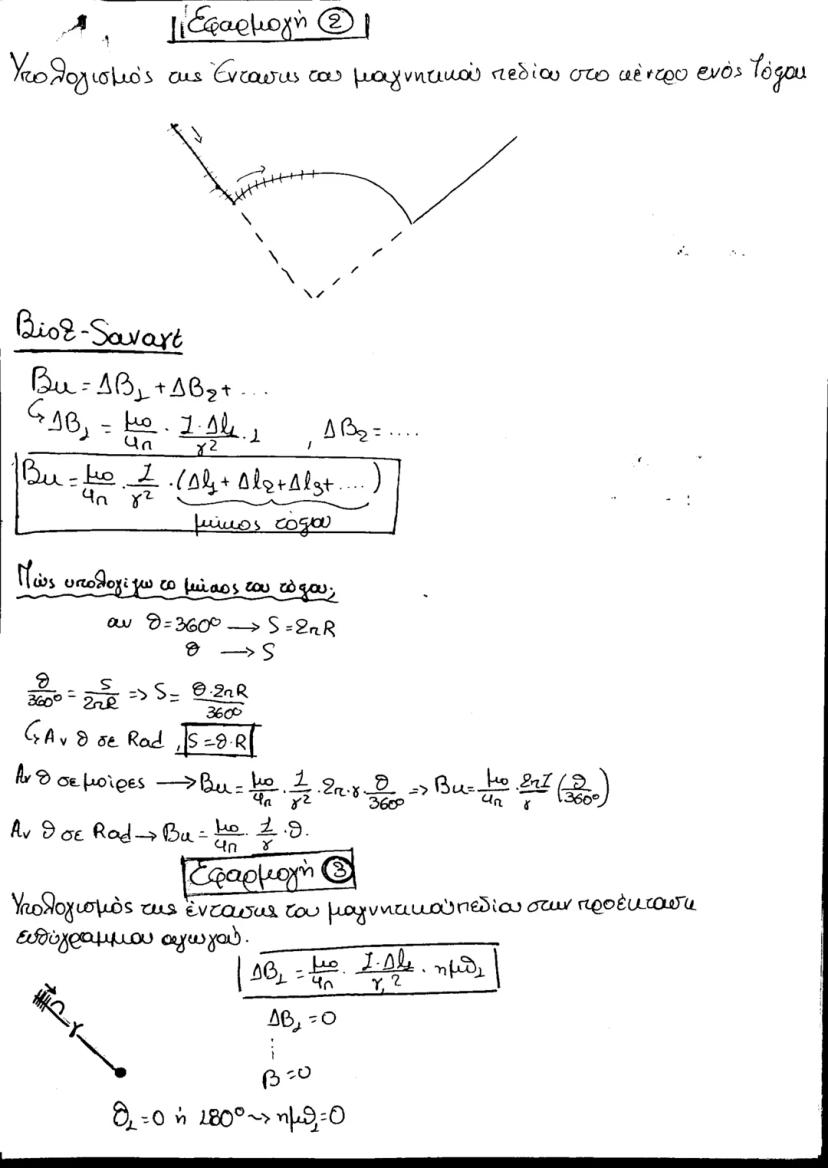 Εφαρμογή ②
Υπολογισμός της Έντασης του μαγνητικού πεδίου στο κέντρο ενός τόξου
Biot-Savart
Bκ = ΔB₁ + ΔB₂ + ....
↳ ΔB₁ = μο/4π · I·Δl₁/r² · 1 , ΔB₂ = ....
Bκ = μο/4π · I/r² · (Δl₁ + Δl₂ + Δl₃ + ....)
μήκος τόξου
Πώς υπολογίζω το μήκος του τόξου;
αν θ = 360° → S = 2πR
θ → S
θ/360° = S/2πR => S = θ·2πR/360°
↳ Αν θ σε Rad, S = θ·R
Αν θ σε μοίρες → Bκ = μο/4π · I/r² · 2π·r · θ/360° => Bκ = μο/4π · 2πI/r (θ/360°)
Αν θ σε Rad → Bκ = μο/4π · I/r · θ.
Εφαρμογή ③
Υπολογισμός της έντασης του μαγνητικού πεδίου στην προέκταση
ευθύγραμμου αγωγού.
ΔB₁ = μο/4π · I·Δl₁/r₁² · ημθ₁
r
ΔB₁ = 0
B = 0
θ₁ = 0 ή 180° ⇝ ημθ₁ = 0